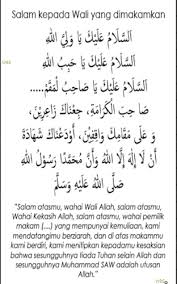 Salam kepada Wali yang dimakamkan
اَلسَّلَامُ عَلَيْكَ يَا وَلِيَّ اللهِ
اَلسَّلَامُ عَلَيْكَ يَا حَبِيْبَ اللهِ
اَلسَّلَامُ عَلَيْكَ يَا صَاحِبَ لْمَقَمْ.....
صَا حِبَ الْكَرَامَةِ, جِئْنَاكَ زَاعِرِيْنَ,
وَ عَلَى مَقَامِكَ وَاقِفِيْنَ, أَوْدَعْنَاكَ شَهَادَةَ
أَنْ لَا إِلَهَ إِلَّا اللهُ وَأَنَّ مُحَمَّدًا رَسُوْلُ اللهِ
صَلَّى اللهُ عَلَيْهِ وَسَلَّمَ
"Salam atasmu, wahai Wali Allah, salam atasmu,
Wahai Kekasih Allah, salam atasmu, wahai pemilik
makam (...) yang mempunyai kemuliaan, kami
mendatangimu berziarah, dan di atas makammu
kami berdiri, kami menitipkan kepadamu kesaksian
bahwa sesungguhnya tiada Tuhan selain Allah dan
sesungguhnya Muhammad SAW adalah utusan
Allah."